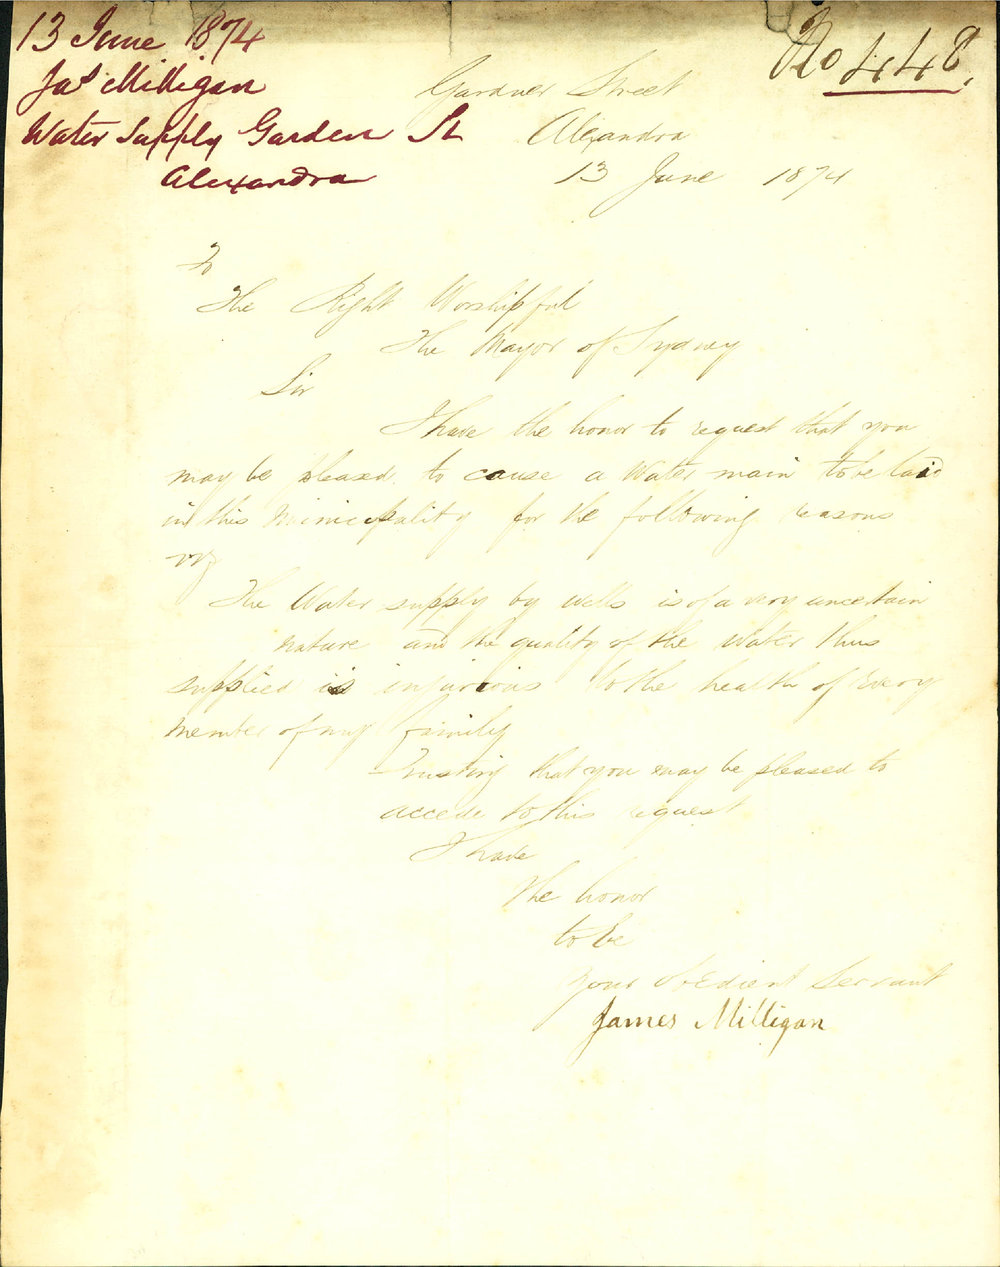 13 June 1874
Jas Milligan
Water Supply Garden St
Alexandra
No 448.
Gardner Street
Alexandra
13 June 1874
To
The Right Worshipful
The Mayor of Sydney
Sir
I have the honor to request that you
may be pleased to cause a Water main to be laid
in this Municipality for the following reasons
viz
The Water supply by wells is of a very uncertain
nature and the quality of the water thus
supplied is injurious to the health of Every
member of my family
Trusting that you may be pleased to
accede to this request
I have
the honor
to be
your obedient Servant
James Milligan